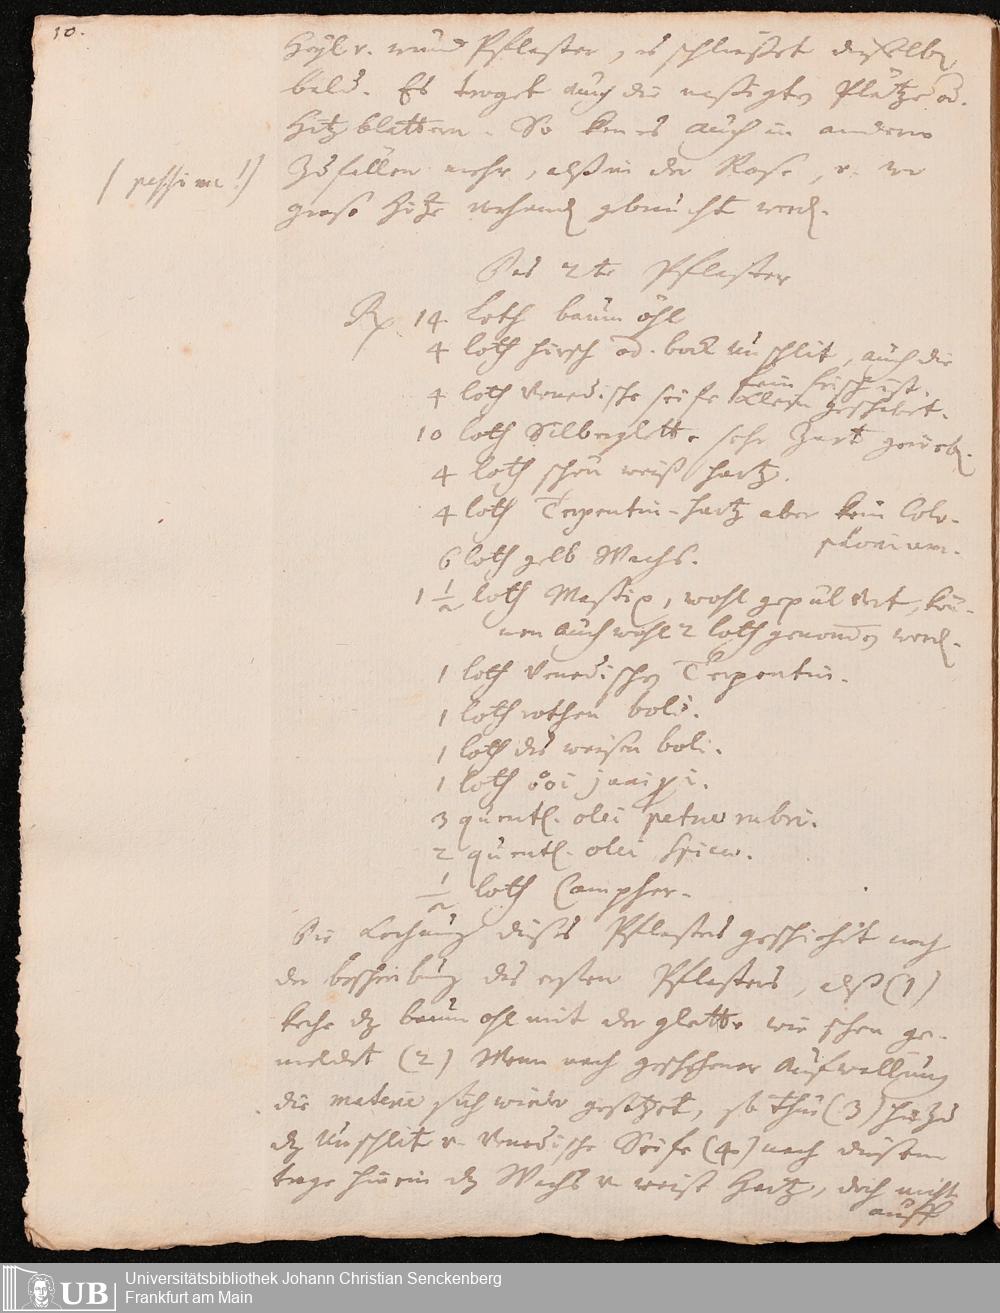 10.
Heyl u. wund Pflaster, es schliesset dieselbe
bald. Es truget auch die nassigten Plätze od.
Hitzblattern. So kan es auch in andern
(pessime!)
Zufällen mehr, alß in der Rose, u. wo
große Hitze vorhand gebraucht werd.
Das 2te Pflaster
Rp. 14 Loth baum öhl
4 loth hirsch od. bock Unschlit, auch die
fein frisch ist.
4 loth Venedische seife klein geschabet.
10 loth Silberglette sehr zart gerieb.
4 loth schön weiß hartz.
4 loth Terpentin-hartz aber kein Colo-
phonium.
6 loth gelb Wachs.
1 1/2 loth Mastix, wohl gepulvert, kön-
nen auch wohl 2 loth genommen werd.
1 loth Venedischen Terpentin.
1 loth rothen boli.
1 loth des weisen boli.
1 loth junipi.
3 quentl. olei petrae rubri.
2 quentl. olei spicae.
1/2 loth Campher.
Die Kochung dieses Pflasters geschieht nach
der beschreibung des ersten Pflasters, alß (1)
koche dz baum ohl mit der glette wie schon ge-
meldet (2) Wenn nach geschehener Aufwallung
die materie sich wieder gesetzet, so thu (3) hinzu
dz Unschlit u. Venedische Seife (4) nach diesem
trage hinein dz Wachs u. weise Hartz, doch nicht
auff
UB
Universitätsbibliothek Johann Christian Senckenberg
Frankfurt am Main